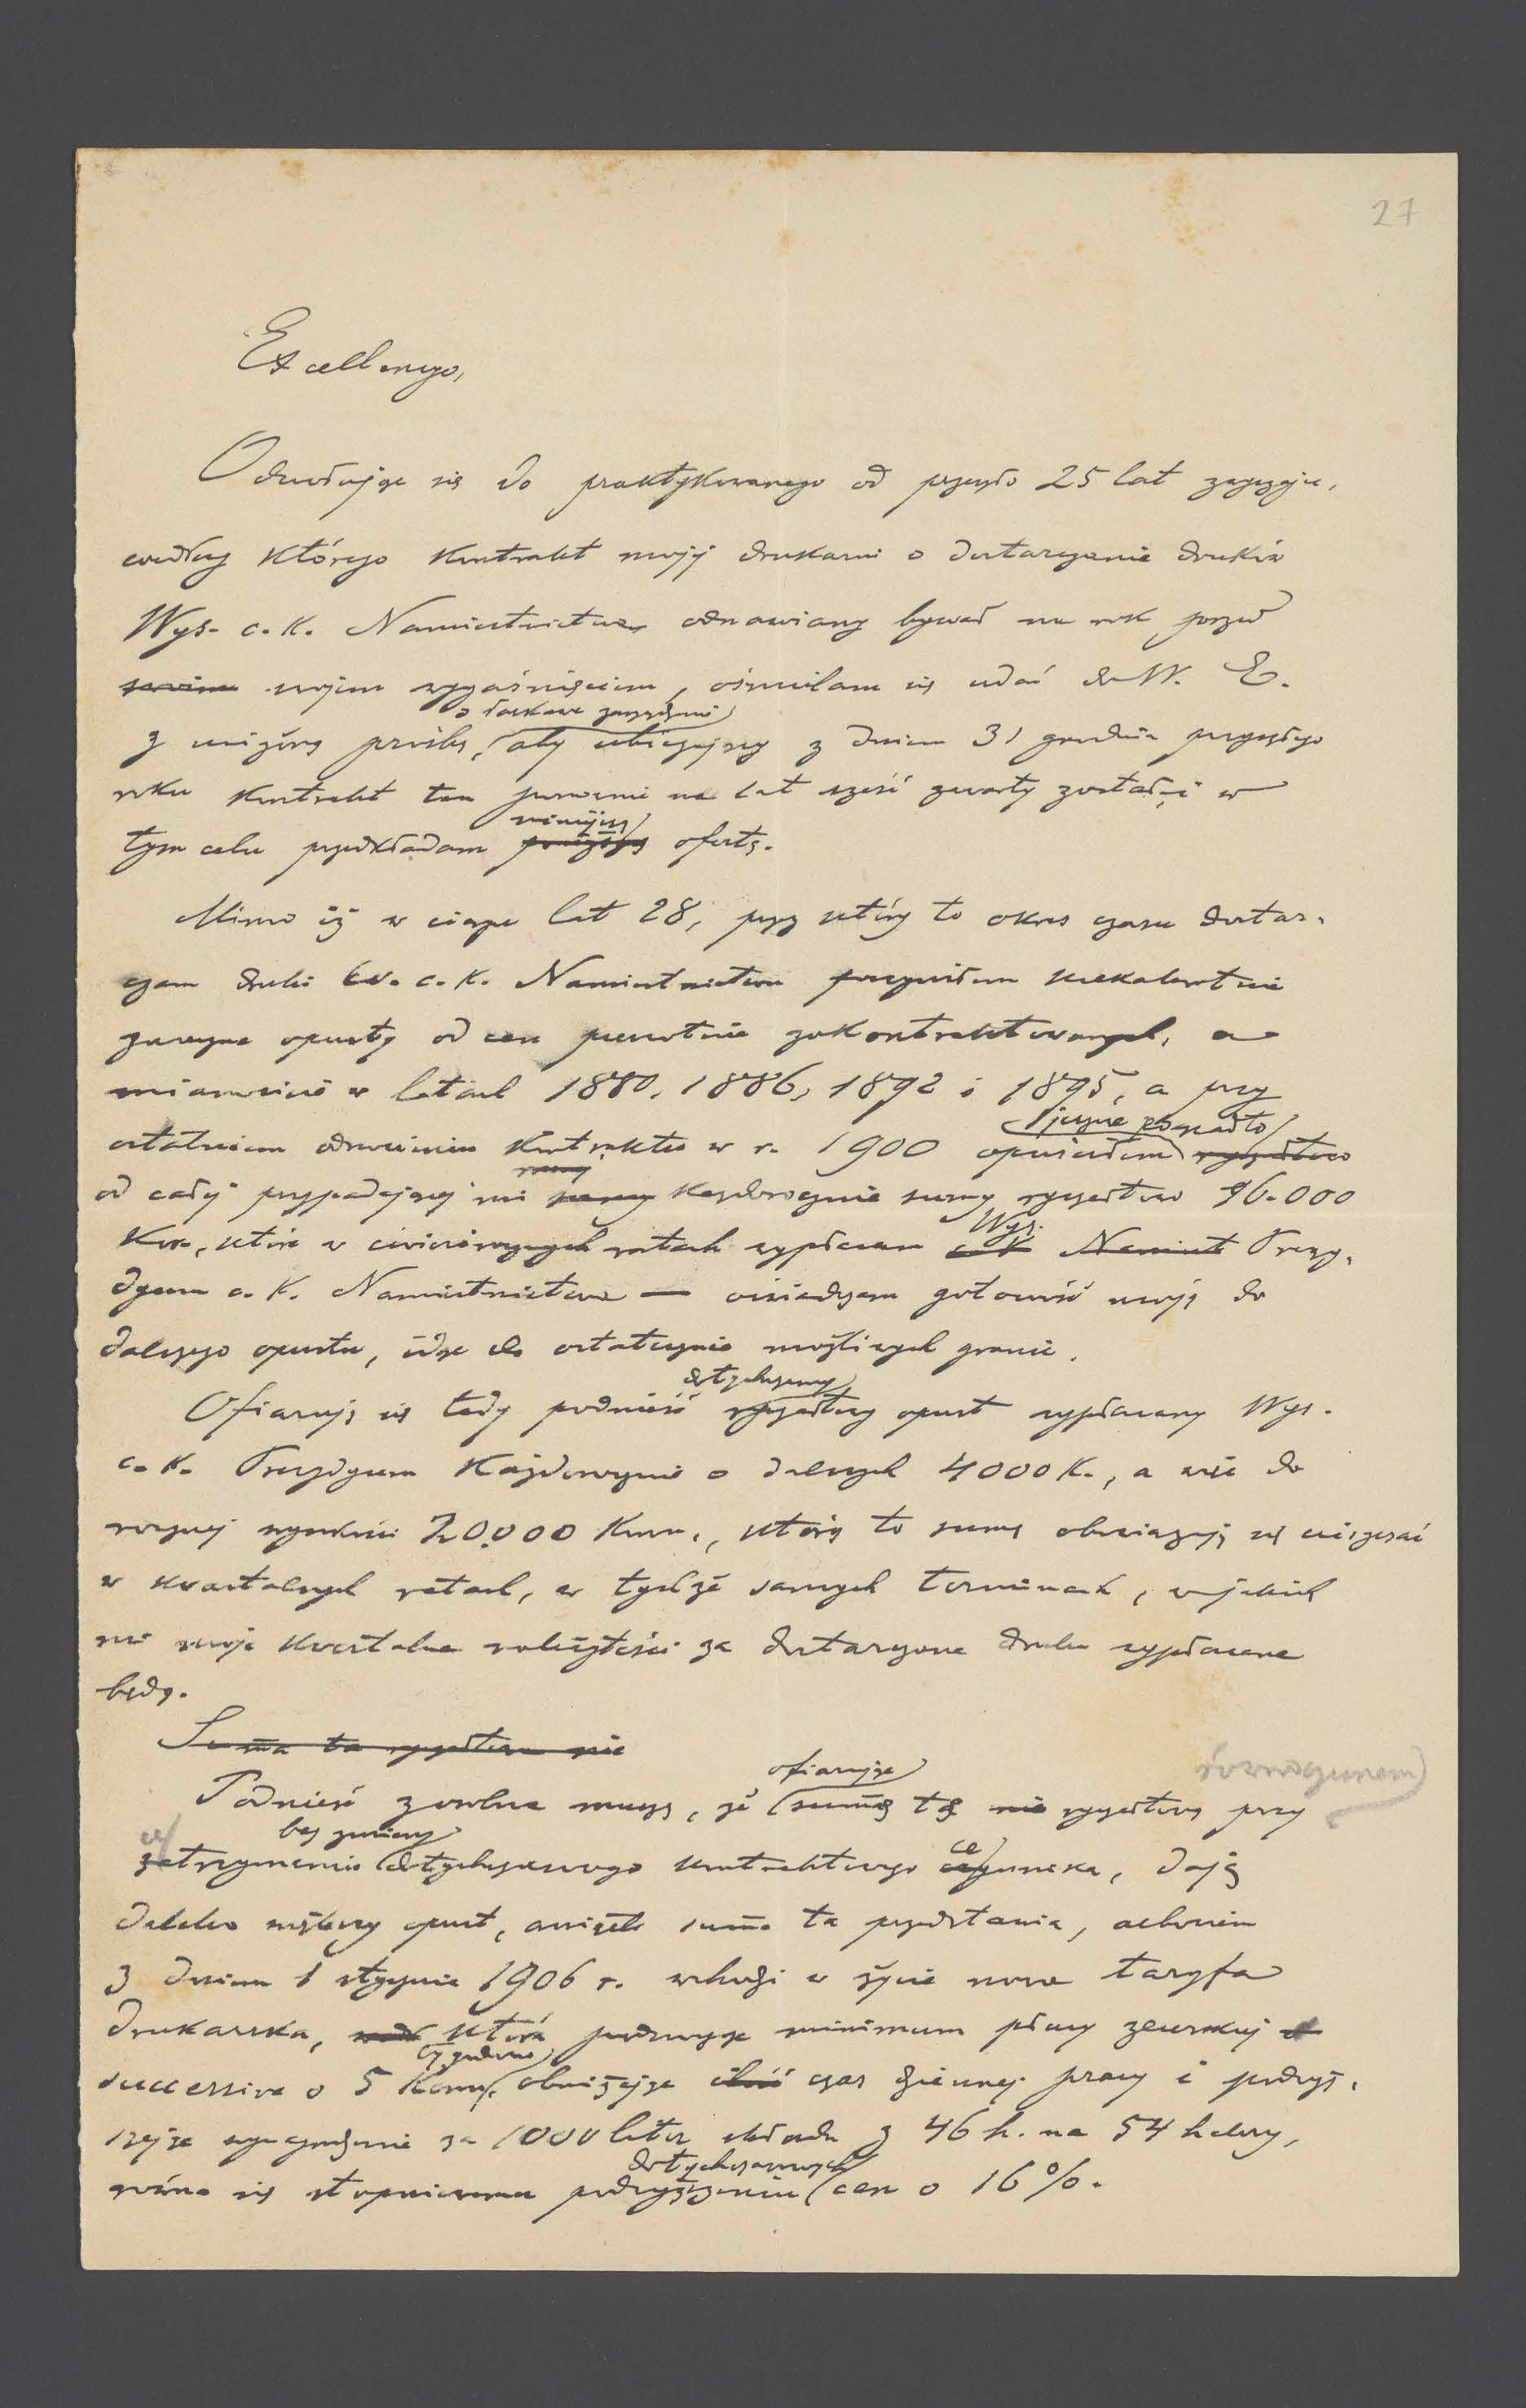 27
Excellencyo,
Odwołując się do praktykowanego od przeszło 25 lat zwyczaju,
według którego kontrakt mojej drukarni o dostarczanie druków
Wys. c. k. Namiestnictwa odnawiany bywał na rok przed
swoim wygaśnięciem, ośmielam się udać do W. E.
o łaskawe zarządzenie
z uniżoną prośbą, aby ubiegający z dniem 31 grudnia przyszłego
roku kontrakt ten ponownie na lat sześć zawarty został, i w
niniejszą
tym celu przedkładam poniższą ofertę.
Mimo iż w ciągu lat 28, przez który to okres czasu dostar-
czam druki c. k. Namiestnictwu poczyniłem kilkakrotnie
znaczne opusty od cen pierwotnie zakontraktowanych, a
mianowicie w latach 1880, 1886, 1892 i 1895, a przy
jeszcze ponadto
ostatniem odnowieniu kontraktu w r. 1900 opuściłem ryczałtowo
od całej przypadającej mi sumy każdorocznie sumy ryczałtowo 16.000
Wys.
Kor., które w ćwierćrocznych ratach wypłacam c k Namiest Prezy-
dyum c. k. Namiestnictwa — oświadczam gotowość moją do
dalszego opustu, idąc do ostatecznie możliwych granic.
dotychczasowy
Ofiaruję się tedy podnieść ryczałtowy opust wypłacany Wys.
c. k. Prezydyum każdorocznie o dalszych 4000 K., a więc do
rocznej wysokości 20.000 Koron, którą to sumę obowiązuję się uiszczać
w kwartalnych ratach, w tychże samych terminach, w jakich
mi moje kwartalne należytości za dostarczone druki wypłacane
będą.
Suma ta ryczałtowa nie
ofiarując
Podnieść zarazem muszę, że sumę tę nie ryczałtową przy
bez zmiany
zatrzymaniu dotychczasowego kontraktowego cennika, daję
daleko większy opust, aniżeli suma ta przedstawia, albowiem
z dniem 1 stycznia 1906 r. wchodzi w życie nowa taryfa
drukarska, która podwyższa minimum płacy zecerskiej
tygodniowo
successive o 5 Koron, obniżając ilość czas dziennej pracy i podwyż-
szając wynagrodzenie za 1000 liter składu z 46 h. na 54 halerzy,
dotychczasowych
równa się stopniowemu podwyższeniu cen o 16%.